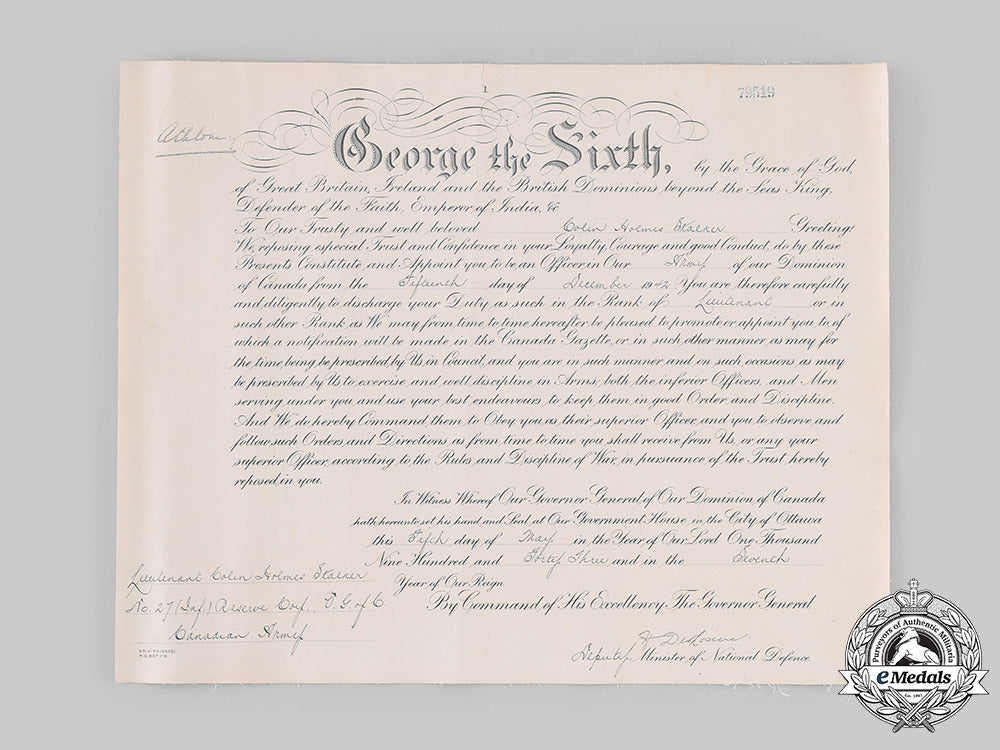 1
79519
Athlone
George the Sixth, by the Grace of God,
of Great Britain, Ireland and the British Dominions beyond the Seas King,
Defender of the Faith, Emperor of India, &c
To Our Trusty and well beloved Colin Holmes Stalker Greeting:
We, reposing especial Trust and Confidence in your Loyalty, Courage and good Conduct, do by these
Presents Constitute and Appoint you to be an Officer in Our Army of our Dominion
of Canada from the Fifteenth day of December 1942 You are therefore carefully
and diligently to discharge your Duty as such in the Rank of Lieutenant or in
such other Rank as We may from time to time hereafter be pleased to promote or appoint you to, of
which a notification will be made in the Canada Gazette, or in such other manner as may for
the time being be prescribed by Us in Council, and you are in such manner and on such occasions as may
be prescribed by Us to exercise and well discipline in Arms, both the inferior Officers, and Men
serving under you and use your best endeavours to keep them in good Order and Discipline.
And We do hereby Command them to Obey you as their superior Officer, and you to observe and
follow such Orders and Directions as from time to time you shall receive from Us, or any your
superior Officer, according to the Rules and Discipline of War, in pursuance of the Trust hereby
reposed in you.
In Witness Whereof Our Governor General of Our Dominion of Canada
hath hereunto set his hand and Seal at Our Government House in the City of Ottawa
this Fifth day of May in the Year of Our Lord One Thousand
Nine Hundred and Forty Three and in the Seventh
Year of Our Reign
By Command of His Excellency The Governor General
Lieutenant Colin Holmes Stalker
No. 27 (Inf) Reserve Coy., T.G. of C
Canadian Army
H DesRosiers
Deputy Minister of National Defence.
Purveyors of Authentic Militaria
eMedals